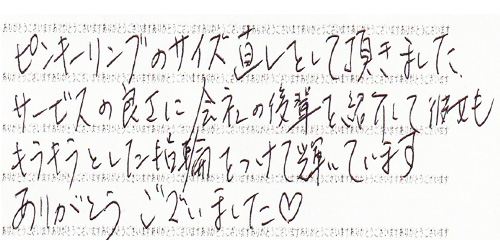 ピンキーリングのサイズ直しをして頂きました
サービスの良さに会社の後輩を紹介して彼女も
キラキラとした指輪をつけて輝いています
ありがとうございました♡